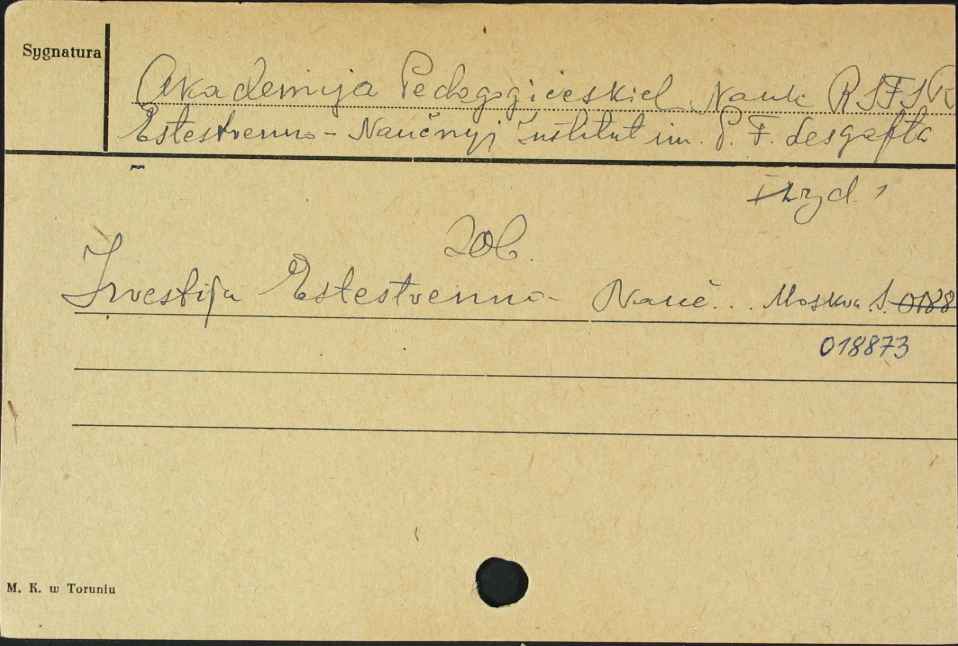 Sygnatura
Akademija Pedagogičeskich Nauk RSFSR
Estestvenno-Naučnyj Institut im. P. F. Lesgafta
Wyd.
Zob.
Izvestija Estestvenno-Nauč... Moskva S. 0188
018873
M. K. w Toruniu